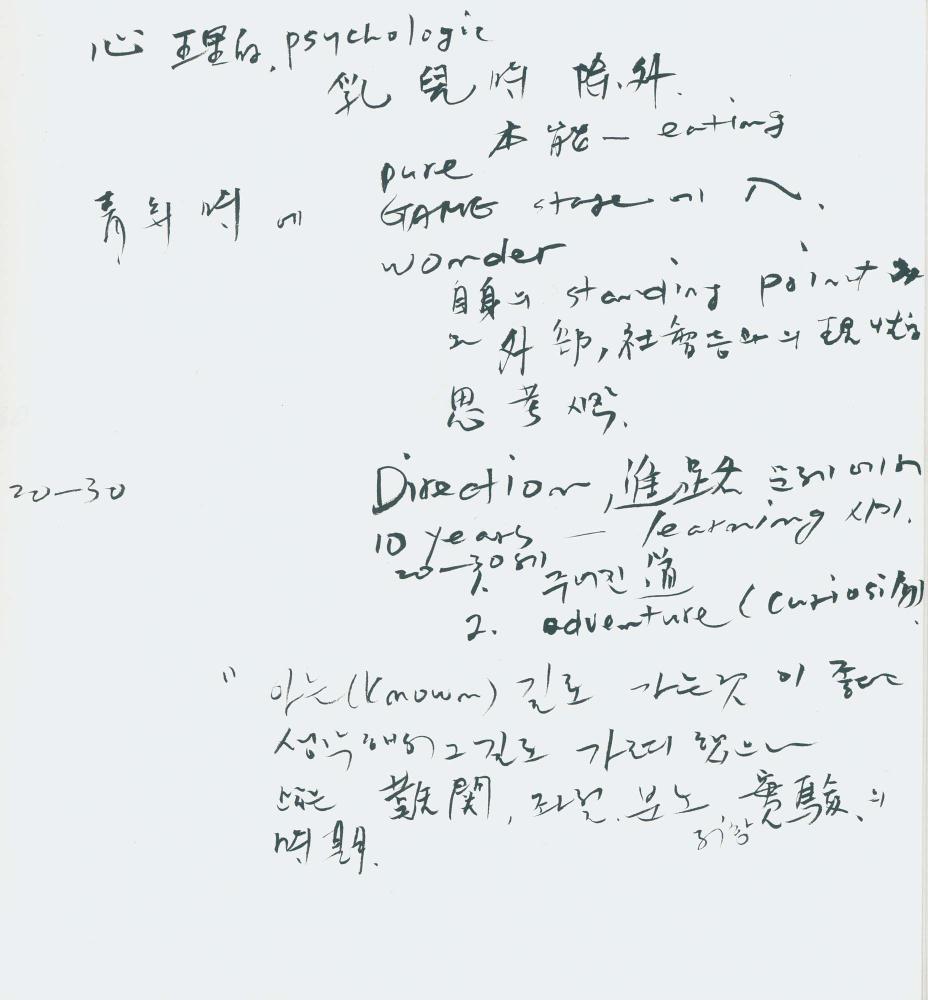 心理的, psychologic
乳兒時 除外.
pure 本能 — eating
青年時에 GAME stage에 入.
wonder
自身의 standing point
外部, 社會 의 現
思考 시작.
20-30 Direction, 進路 문제에
10 years — learning 시기.
20-30에
1. 주어진 道
2. adventure (curiosity)
" 아는(known) 길로 가는것이 좋다
생각해서 그길로 가려 했으나
難関, 좌절, 분노, 희망 實驗의
時期.